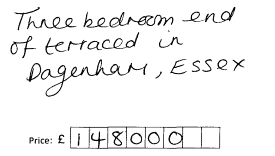 Three bedroom end
of terraced in
Dagenham, Essex
Price: £ 148000